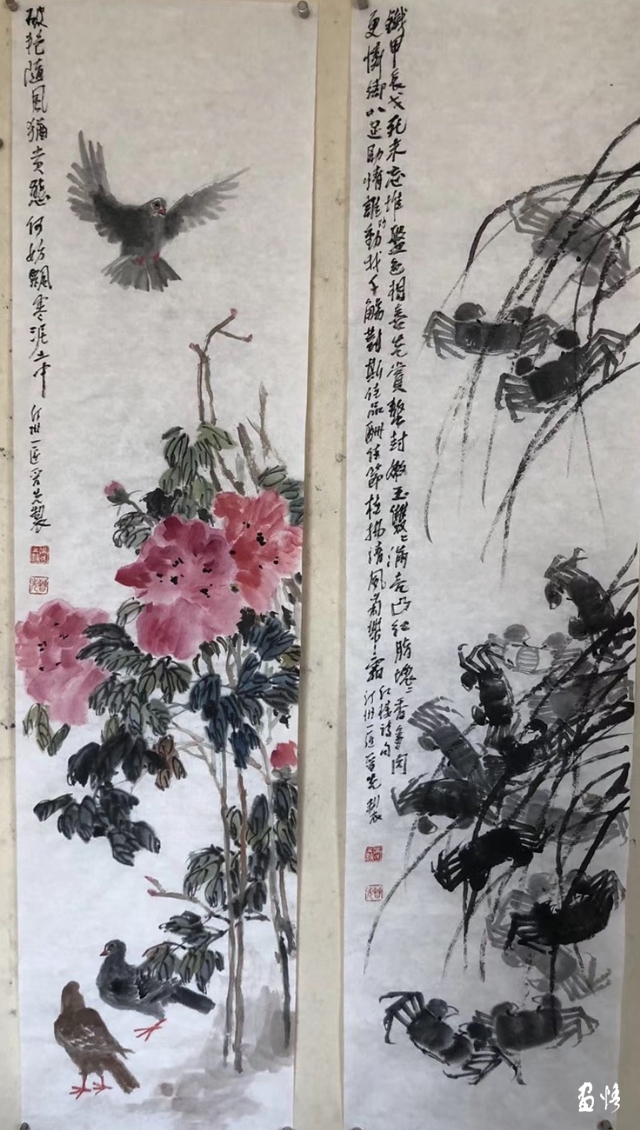 破艳随风猶贵態何妨飘零泥土中
汀州一匡晋先製
鐵甲長戈死未忘堆盤色相喜先嘗螯封嫩玉雙〻滿壳凸红脂塊〻香多肉
更憐卿八足助情誰勸我千觴對斯佳品酬佳節桂拂清風菊帶霜
红楼诗句
汀州一匡晋先製